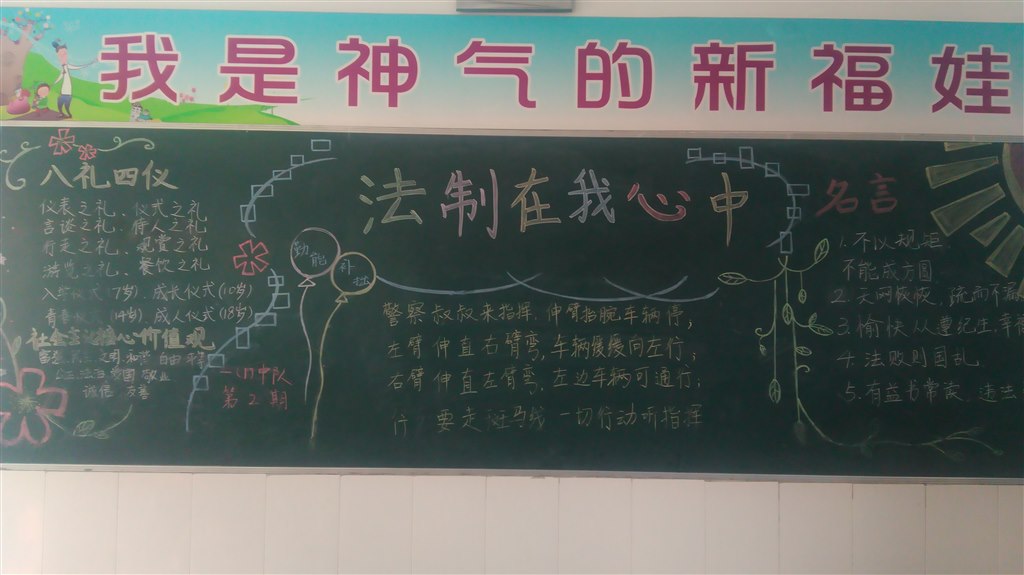 我是神气的新福娃
八礼四仪
仪表之礼、仪式之礼
言谈之礼、待人之礼
行走之礼、观赏之礼
游览之礼、餐饮之礼
入学仪式(7岁)、成长仪式(10岁)
青春仪式(14岁)、成人仪式(18岁)
社会主义核心价值观
富强 民主 文明 和谐 自由 平等
公正 法治 爱国 敬业
诚信 友善
中队
第2期
勤能
补拙
法制在我心中
警察叔叔来指挥,伸臂抬腕车辆停;
左臂伸直右臂弯,车辆缓缓向左行;
右臂伸直左臂弯,左边车辆可通行;
行 要走斑马线 一切行动听指挥
名言
1.不以规矩
不能成方圆
2.天网恢恢,疏而不漏
3.愉快从遵纪生,幸福
4.法败则国乱
5.有益书常读,违法